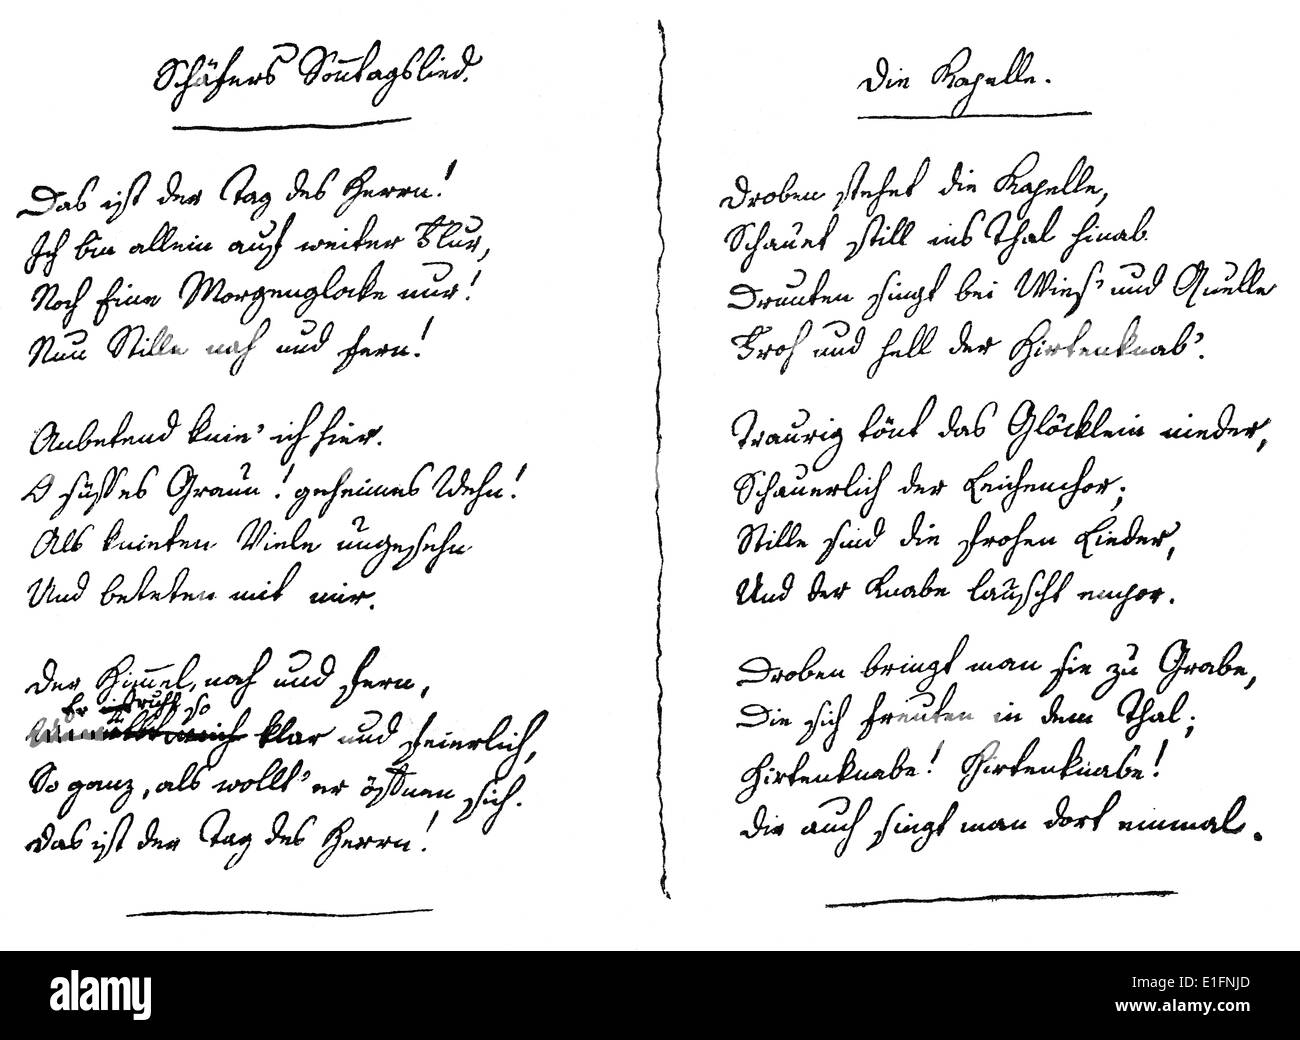 Schäfers Sonntagslied.
Das ist der Tag des Herrn!
Ich bin allein auf weiter Flur,
Noch Eine Morgenglocke nur!
Nun Stille nah und fern!
Anbetend knie' ich hier.
O süsses Graun! geheimes Wehn!
Als knieten Viele ungesehn
Und beteten mit mir.
Der Himmel, nah und fern,
Er ist so
klar und feierlich,
So ganz, als wollt' er öffnen sich.
Das ist der Tag des Herrn!
Die Kapelle.
Droben stehet die Kapelle,
Schauet still ins Thal hinab.
Drunten singt bei Wies' und Quelle
Froh und hell der Hirtenknab'.
Traurig tönt das Glöcklein nieder,
Schauerlich der Leichenchor;
Stille sind die frohen Lieder,
Und der Knabe lauscht empor.
Droben bringt man sie zu Grabe,
Die sich freuten in dem Thal;
Hirtenknabe! Hirtenknabe!
Dir auch singt man dort einmal.
alamy
Image ID: E1FNJD
www.alamy.com